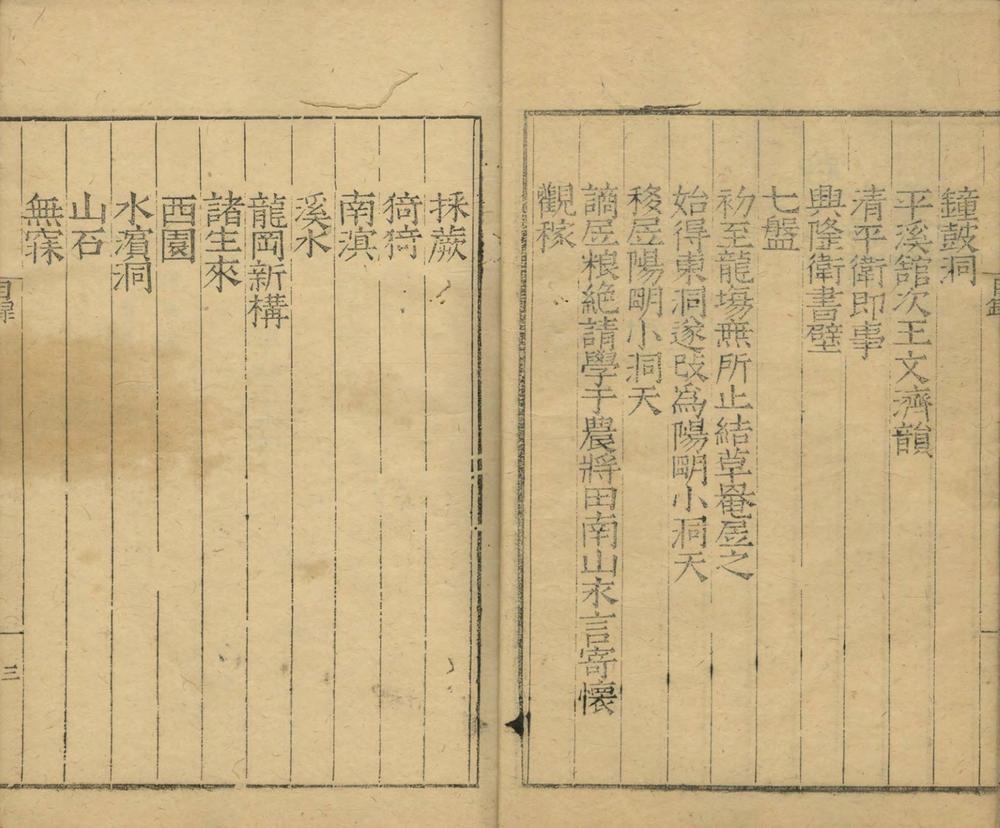 鐘鼓洞
平溪舘次王文濟韻
清平衛即事
興隆衛書壁
七盤
初至龍塲無所止結草菴居之
始得東洞遂改爲陽明小洞天
移居陽明小洞天
謫居粮絶請學于農將田南山永言寄懷
觀稼
採蕨
猗猗
南溟
溪水
龍岡新構
諸生來
西園
水濵洞
山石
無寐
三